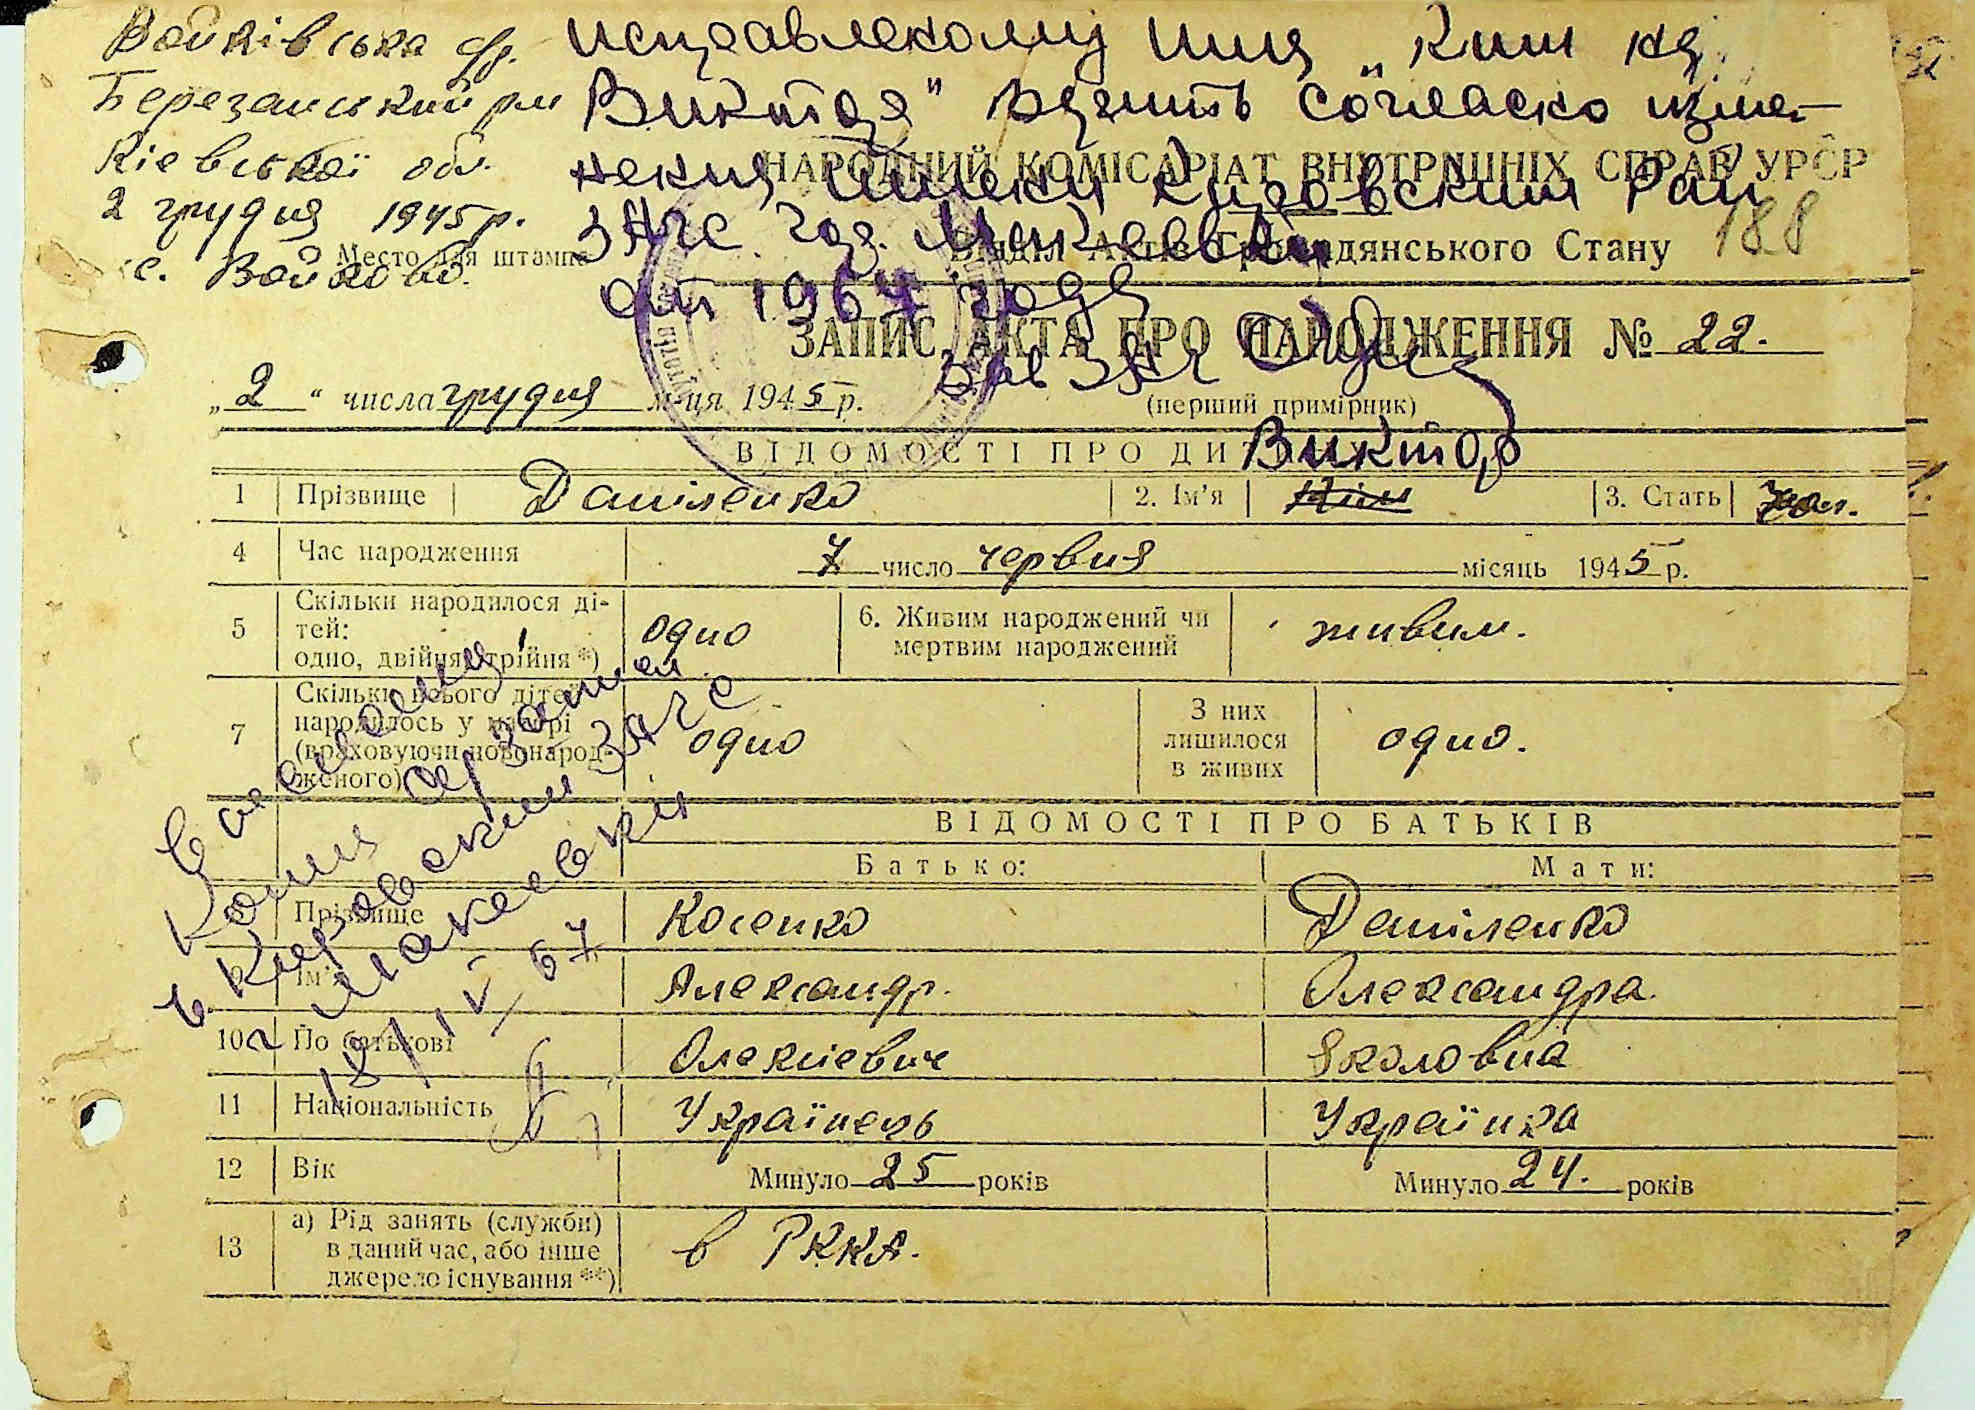 Войківська с/р.
Березанський р-н
Кіевської обл.
2 грудня 1945 р.
с. Войково.
Место для штампа
исправленому имя „Ким на
Виктор" верить согласно изме-
нения имени Кировским Рай
ЗАГС гор. Макеевки
от 1964 года
Зав ЗАГС
НАРОДНИЙ КОМІСАРІАТ ВНУТРІШНІХ СПРАВ УРСР
188
Відділ Актів Громадянського Стану
ЗАПИС АКТА ПРО НАРОДЖЕННЯ № 22.
„2" числа грудня м-ця 1945 р.
(перший примірник)
ВІДОМОСТІ ПРО ДИТИНУ
Виктор
1 Прізвище Даніленко 2. Ім'я Кім 3. Стать чол.
4 Час народження 7 число червня місяць 1945 р.
5 Скільки народилося ді-
тей:
одно, двійня, трійня *) одно 6. Живим народжений чи
мертвим народжений живим.
7 Скільки всього дітей
народилось у матері
(враховуючи новонарод-
женого) одно З них
лишилося
в живих одно.
ВІДОМОСТІ ПРО БАТЬКІВ
Батько: Мати:
8 Прізвище Косенко Даніленко
9 Ім'я Александр. Олександра.
10 По батькові Олексіевич Яколовна
11 Національність Українець Українка
12 Вік Минуло 25 років Минуло 24. років
13 а) Рід занять (служби)
в даний час, або інше
джерело існування **) в РККА.
Копия
в Кировский ЗАГС
г Макеевки
18/IV 67